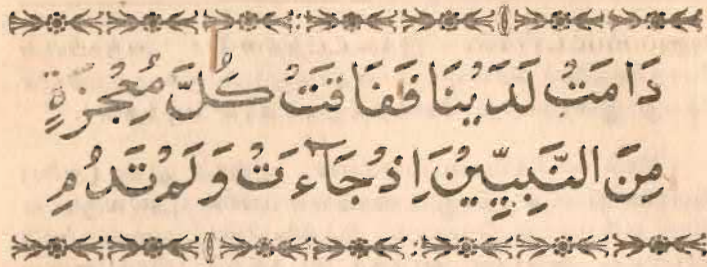 دَامَتْ لَدَيْنَا فَفَاقَتْ كُلَّ مُعْجِزَةٍ
مِنَ النَّبِيِّيْنَ اِذْجَآءَتْ وَلَمْ تَدُمِ